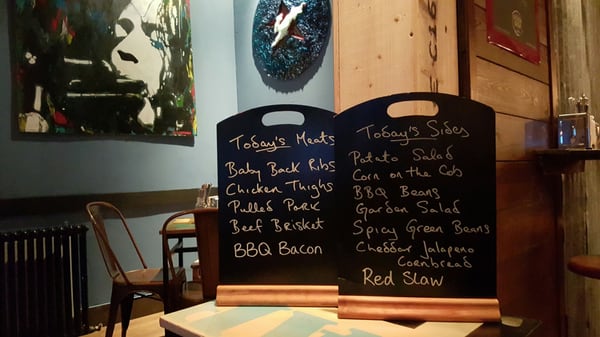 Today's Meats
Baby Back Ribs
Chicken Thighs
Pulled Pork
Beef Brisket
BBQ Bacon
Today's Sides
Potato Salad
Corn on the Cob
BBQ Beans
Garden Salad
Spicy Green Beans
Cheddar Jalapeno
Cornbread
Red Slaw